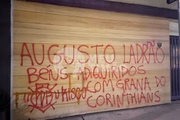 AUGUSTO LADRÃO
BENS ADQUIRIDOS
COM GRANA DO
CORINTHIANS